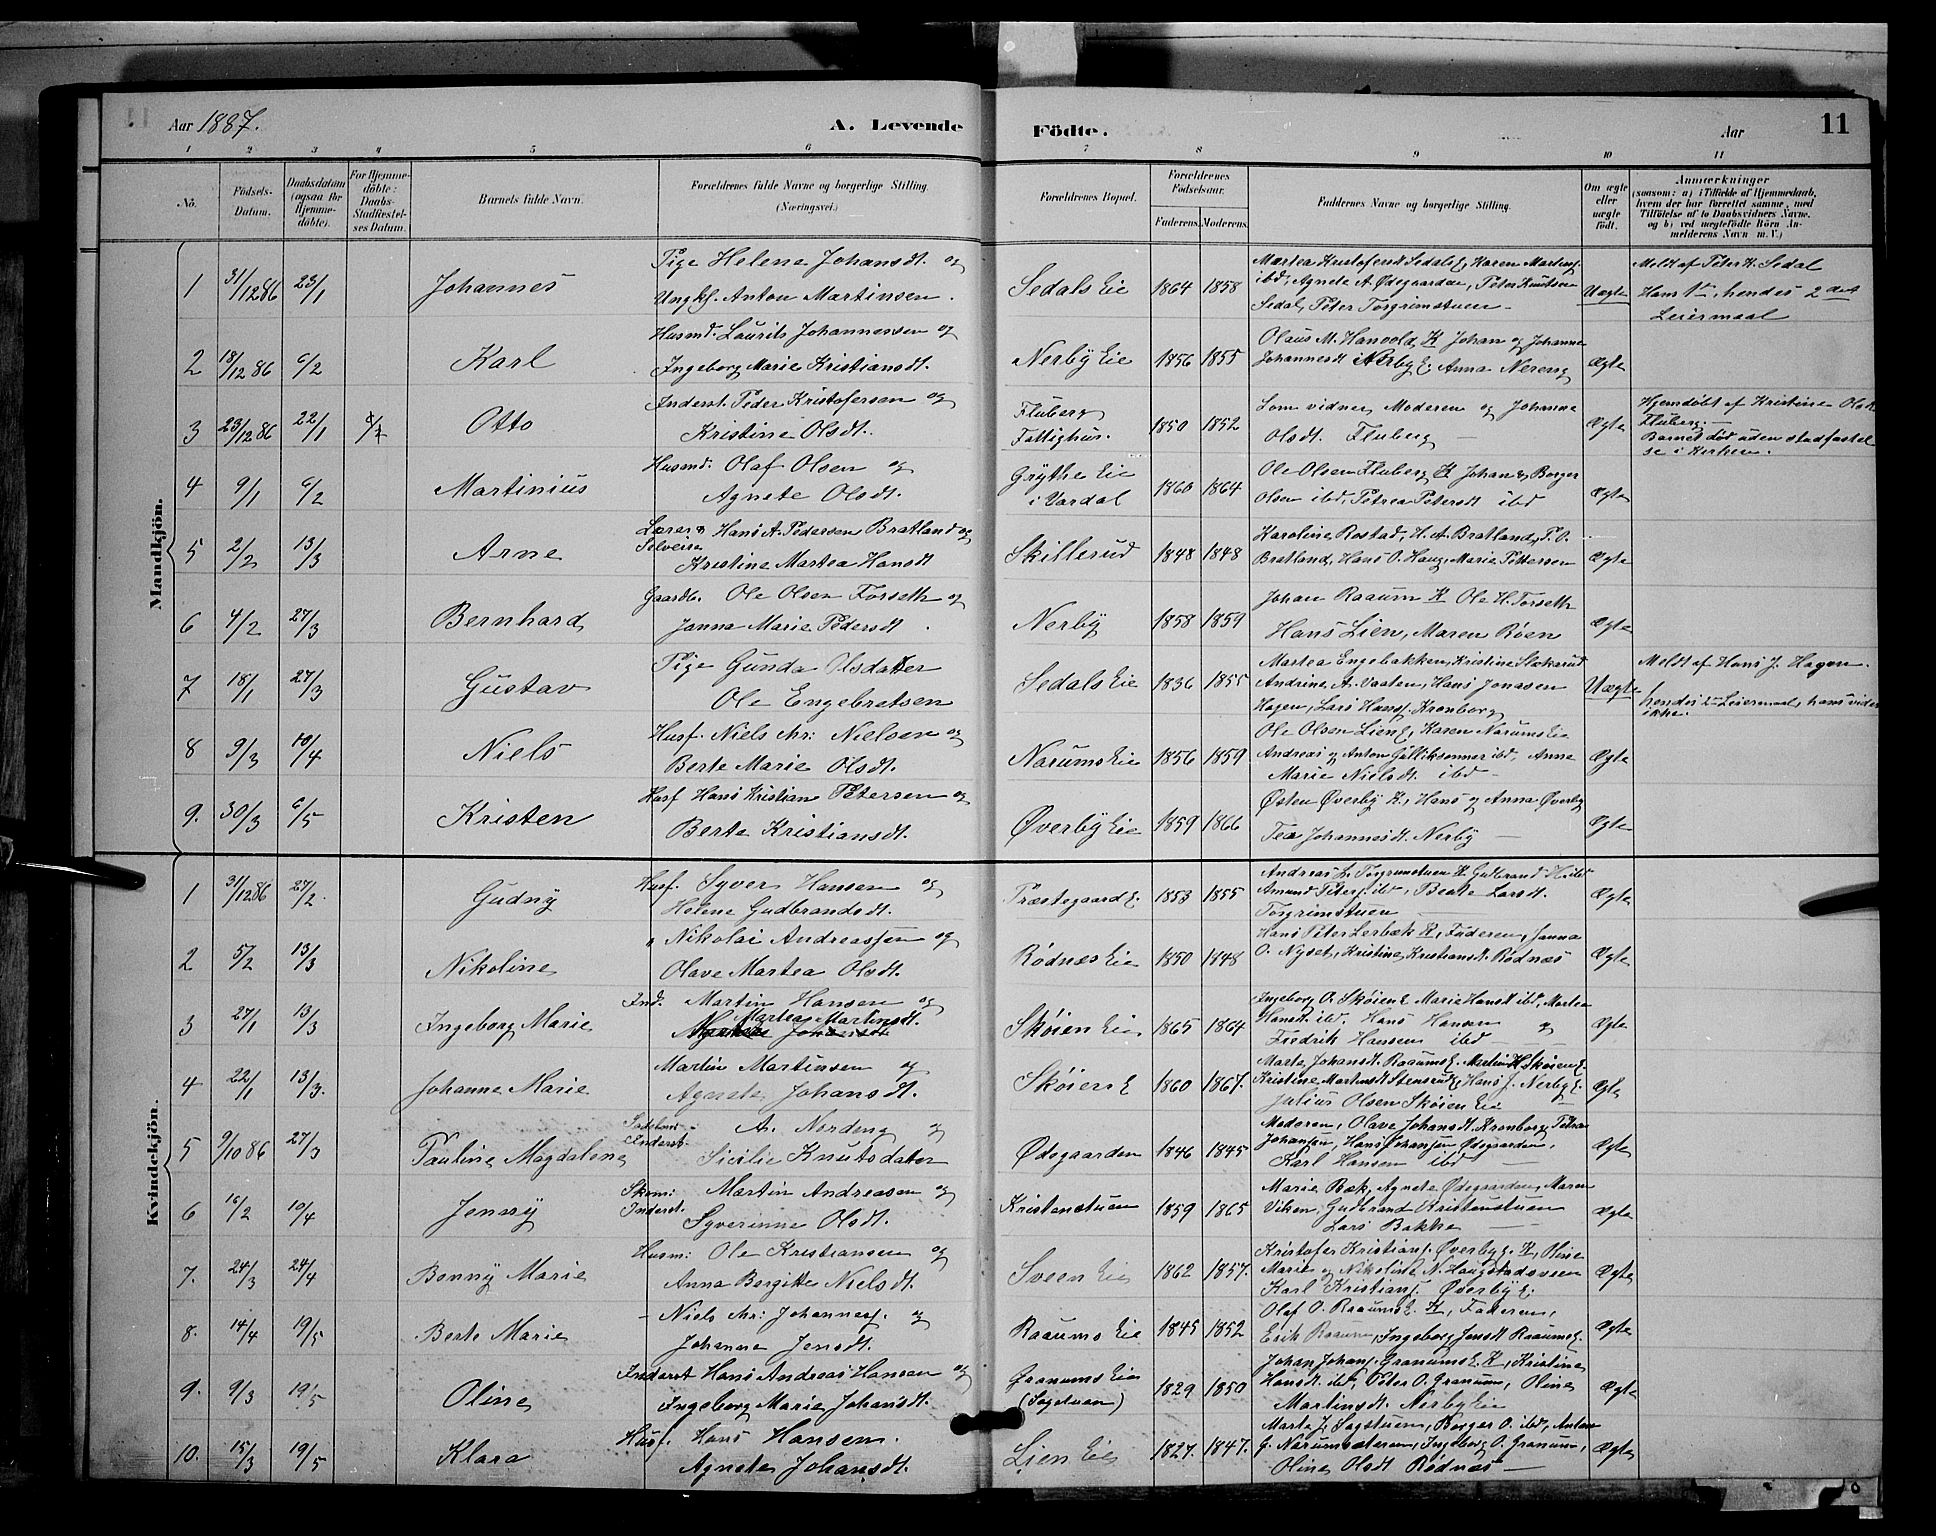 Aar 1887.
A. Levende Födte.
Aar
11
1 2 3 4 5 6 7 8 9 10 11
No.
Födsels-Datum.
Daabsdatum (ogsaa for Hjemme-döbte).
For Hjemme-döbte: Daabs-Stadfæstel-ses Datum.
Barnets fulde Navn.
Forældrenes fulde Navne og borgerlige Stilling. (Næringsvei.)
Forældrenes Bopæl.
Forældrenes Födselsaar.
Faderens. Moderens.
Faddernes Navne og borgerlige Stilling.
Om ægte eller uægte födt.
Anmærkninger
(saasom: a) i Tilfælde af Hjemmedaab,
hvem der har forrettet samme, med
Tilföielse af to Daabsvidners Navne.
og b) ved uægtefödte Börn An-
melderens Navn m. V.)
Mandkjön.
1 31/12 86 23/1 Johannes
Pige Helene Johansdt. og
Ungkl. Anton Martinsen.
Sedals Eie 1864 1858
Martea Kristofersdt Sedals E, Karen Martins
ibd, Agnete A. Ødegaarden, Peter Knutsen
Sedal, Peter Torgrimstuen
Uægte
Meldt af Peter K. Sedal
Hans 1ste, hendes 2det
Leiermaal
2 18/12 86 6/2 Karl
Husmd. Laurits Johannessen og
Ingeborg Marie Kristiansdt.
Nerby Eie 1856 1855
Olaus M. Hanvold K Johan og Johanne
Johannesdt Nerby E. Anna Nereng
Ægte
3 23/12 86 22/1 Otto
Inderst. Peder Kristofersen og
Kristine Olsdt.
Fluberg Fattighus. 1850 1852
Som vidner Moderen og Johanne
Olsdt. Fluberg
Ægte
Hjemdöbt af Kristine Olsdt
Fluberg.
Barnet död uden stadfæstel
se i Kirken.
4 9/1 6/2 Martinius
Husmd. Olaf Olsen og
Agnete Olsdt.
Grythe Eie i Vardal 1860 1864
Ole Olsen Fluberg K Johan & Borger
Olsen ibd, Petrea Petersdt ibd
Ægte
5 2/2 13/3 Arne
Lærer & Selveier Hans A. Pedersen Bratland og
Kristine Martea Hansdt
Skillerud 1848 1848
Karoline Rostad, H. A. Bratland, P. O.
Bratland, Hans O. Haug, Marie Pettersen
Ægte
6 4/2 27/3 Bernhard
Gaardb. Ole Olsen Forseth og
Janna Marie Pedersdt.
Nerby 1858 1859
Johan Raaum K Ole H. Forseth
Hans Lien, Maren Röen
Ægte
7 18/1 27/3 Gustav
Pige Gunda Olsdatter
Ole Engebretsen
Sedals Eie 1836 1855
Martea Engebakken, Kristine
Andrine A. Vaaten, Hans Jonasen
Hagen, Lars Hans. Kronborg
Uægte
Meldt af Hans J. Hagen.
hendes 1ste Leiermaal, hans vides
ikke.
8 9/3 10/4 Niels
Husf. Niels Chr: Nielsen og
Berte Marie Olsdt.
Narums Eie 1856 1859
Ole Olsen Lien E, Karen Narums Eie
Andreas og Anton Gulliksønner ibd, Anne
Marie Nielsdt. ibd
Ægte
9. 30/3 6/5 Kristen
Husf Hans Kristian Petersen og
Berte Kristiansdt.
Øverby Eie 1859 1866
Østen Øverby K, Hans og Anna Øverby
Tea Johannesdt. Nerby
Ægte
Kvindekjön.
1 31/12 86 27/2 Gudny
Husf. Syver Hansen og
Helene Gudbrandsdt.
Præstegaard E. 1853 1855
Andreas L. Torgrimstuen K Gudbrand H. ibd
Amund Peters. ibd, Beate Larsdt.
Torgrimstuen
Ægte
2 5/2 13/3 Nikoline
" Nikolai Andreassen og
Olave Martea Olsdt.
Rödnæs Eie 1850 1848
Hans Peter Lerbæk K, Faderen, Janna
O. Nyset, Kristine Kristiansdt. Rödnæs
Ægte
3 27/1 13/3 Ingeborg Marie
Ind. Martin Hansen og
Martea Martinsdt.
Skøien Eie 1865 1864
Ingeborg O. Skøien E Marie Hansdt ibd, Martea
Hansdt. ibd. Hans Hansen og
Fredrik Hansen ibd
Ægte
4 22/1 13/3. Johanne Marie
Martin Martinsen og
Agnete Johansdt.
Skøiens E 1860 1867.
Marte Johansdt. Raaums E. Martin H. Skøien E.
Kristine Martinsdt Stensrud E, Hans J. Nerby E.
Julius Olsen Skøien Eie
Ægte
5 9/10 86 27/3 Pauline Magdalene
Inderst A. Nordeng og
Sicilie Knutsdatter
Ødegaarden 1846 1845
Moderen, Olave Johansdt. Kronborg, Petra
Johansen, Hans Johansen Ødegaarden,
Karl Hansen ibd
Ægte
6 16/2 10/4 Jenny
Skom: Inderst. Martin Andreasen og
Syverinne Olsdt.
Kristenstuen 1859 1865
Marie Bæk, Agnete Ødegaarden, Maren
Viken, Gudbrand Kristenstuen
Lars Bakke
Ægte
7. 24/3 24/4 Bonny Marie
Husm: Ole Kristiansen og
Anna Birgitte Nielsdt.
Sveen Eie 1862 1857.
Kristofer Kristians. Øverby E. K, Oline
Marie og Nikoline N. Haugstadsveen
Karl Kristians. Øverby E.
Ægte
8. 14/4 19/5 Berte Marie
- Niels Chr: Johannes. og
Johanne Jensdt.
Raaums Eie 1845 1852
Olaf O. Raaums E. K, Faderen,
Erik Raaum, Ingeborg Jensdt Raaums E.
Ægte
9. 9/3 19/5 Oline
Inderst Hans Andreas Hansen og
Ingeborg Marie Johansdt.
Granums Eie (Sagstuen) 1829 1850
Johan Johans. Granums E. K, Kristine
Hansdt. ibd, Peter O. Granum, Oline
Martinsdt. Nerby Eie
Ægte
10. 15/3 19/5 Klara
Husf. Hans Hansen.
Agnete Johansdt.
Lien Eie 1827. 1847.
Marte J. Sagstuen, Borger O. ibd, Anton
G. Narumsæteren, Ingeborg O. Granum,
Oline Olsdt Rødnæs
Ægte